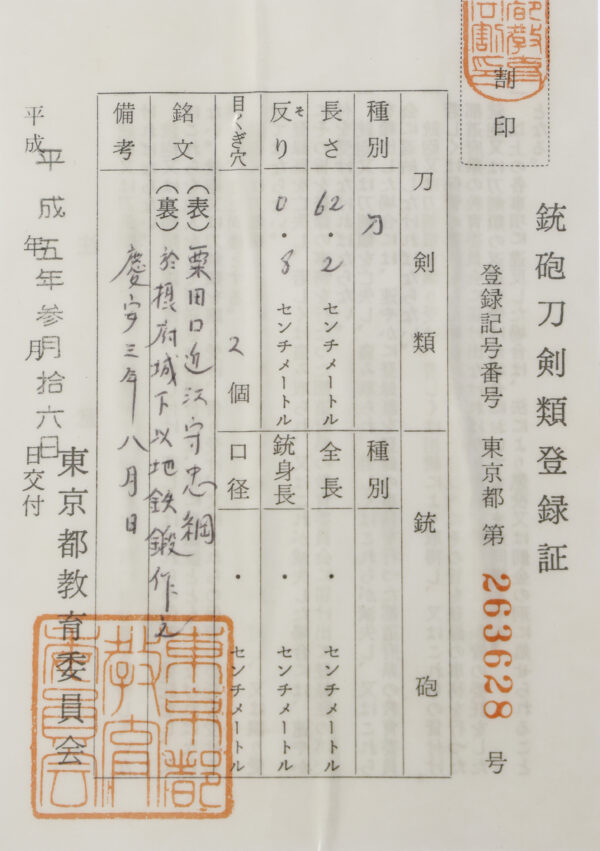 割印
銃砲刀剣類登録証
登録記号番号 東京都 第 263628 号
刀剣類
銃砲
種別 刀
種別
長さ 62・2センチメートル
全長 ・ センチメートル
反り 0・8センチメートル
そ
銃身長 ・ センチメートル
目くぎ穴 2個
口径 ・ センチメートル
銘文 (表)粟田口近江守忠綱
(裏)於摂府城下以地鉄鍛作之
慶安三年八月日
備考
平成 年 月 日交付
平成五年参月拾六日
東京都教育委員会
東京都教育委員会